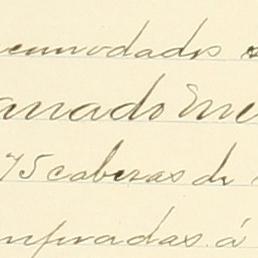 comodados
anado
75 cabezas de
mpradas á